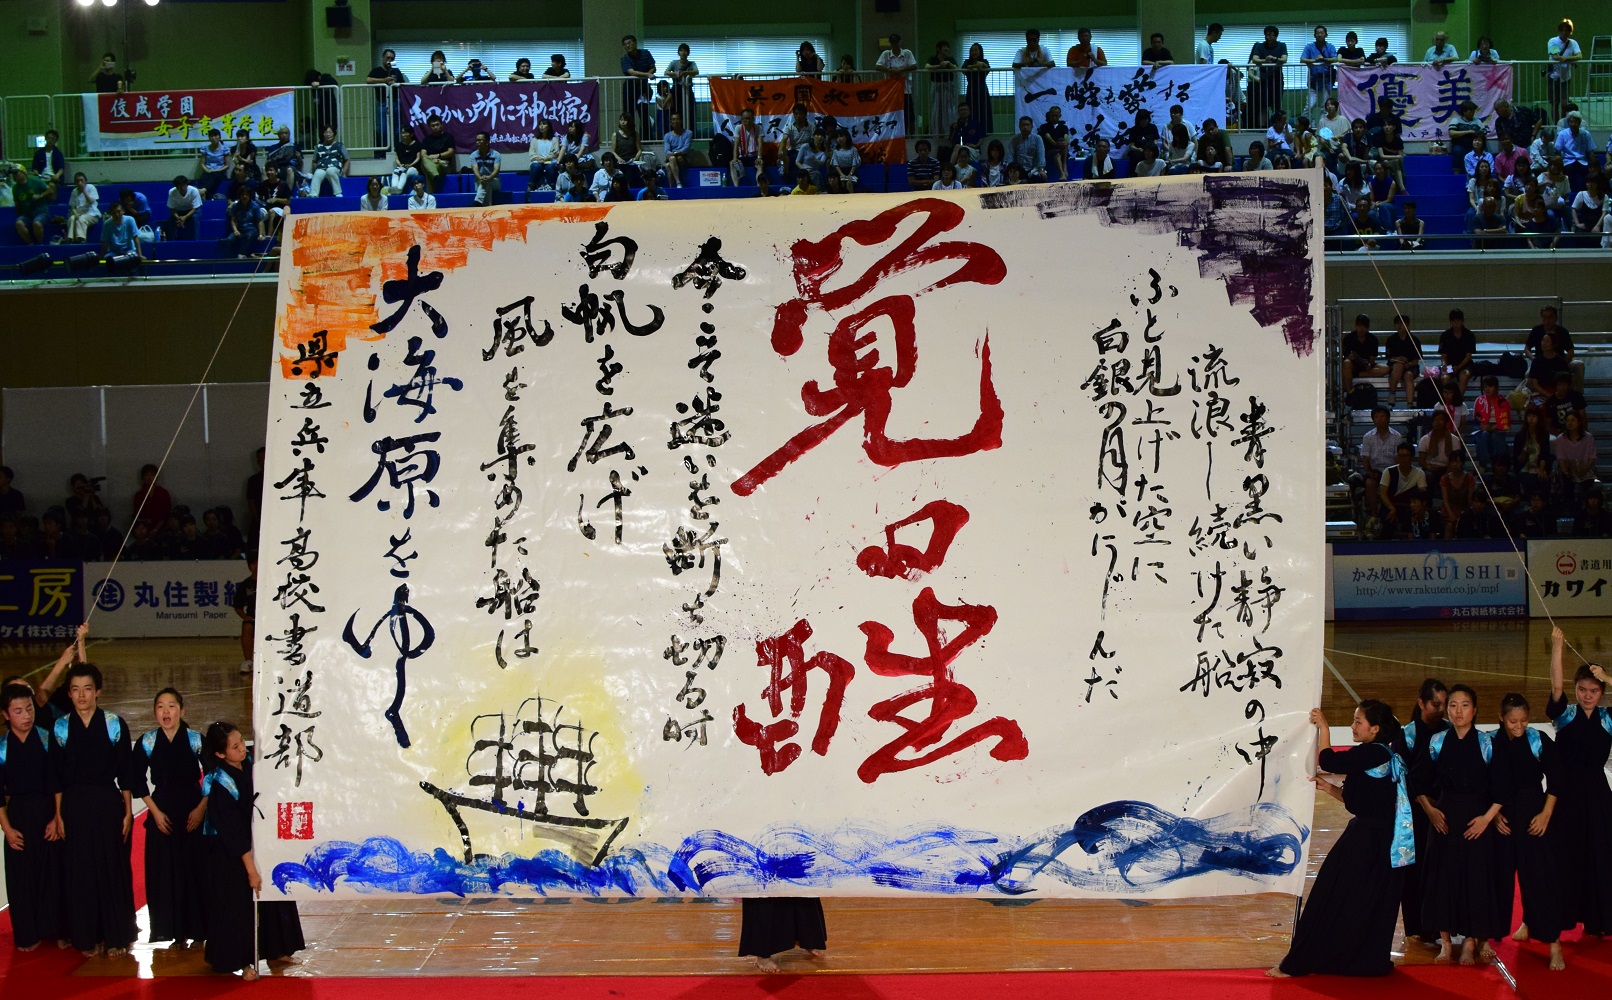 青黒い静寂の中
流浪し続けた船
ふと見上げた空に
白銀の月がにじんだ
覚醒
今こそ迷いを断ち切る時
白帆を広げ
風を集めた船は
大海原をゆく
県立兵庫高校書道部
佼成学園
女子高等学校
細かい所に神は宿る
美の国 秋田
優美
工房
丸住製紙
Marusumi Paper
かみ処MARUISHI
http://www.rakuten.co.jp/mpf
丸石製紙株式会社
書道用
カワイ